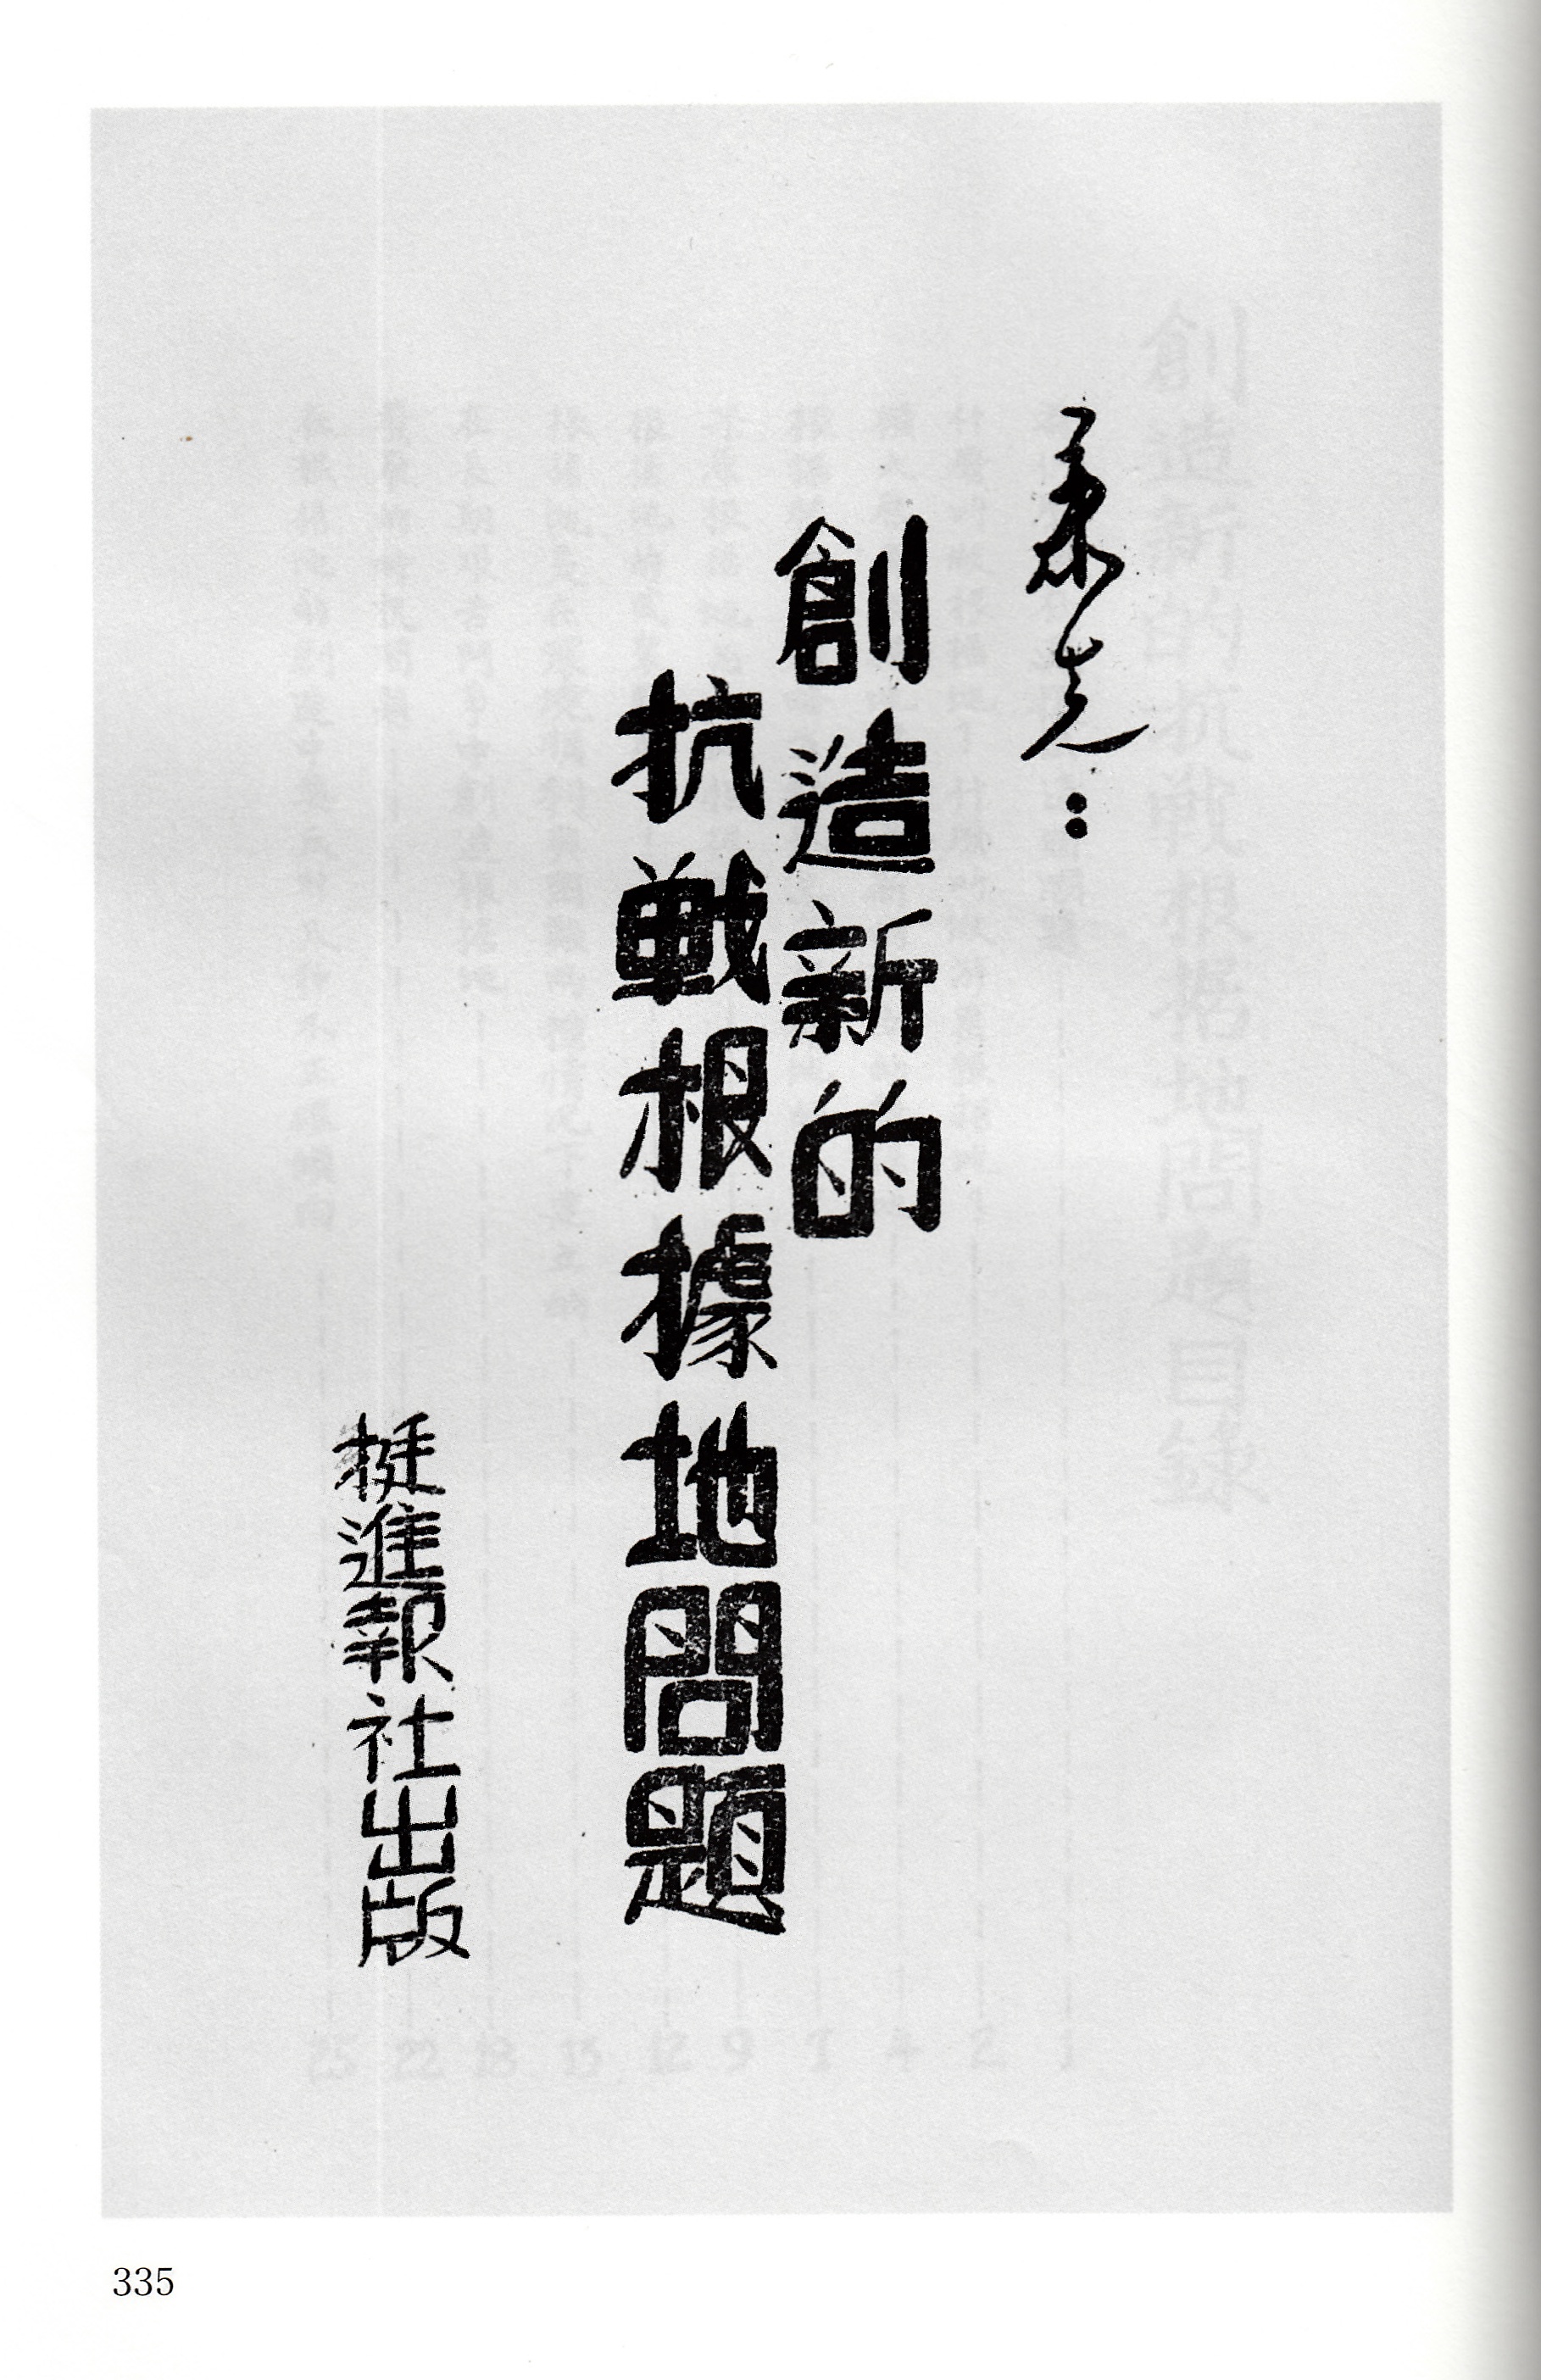 創造新的
抗戦根據地問題
挺進報社出版
335